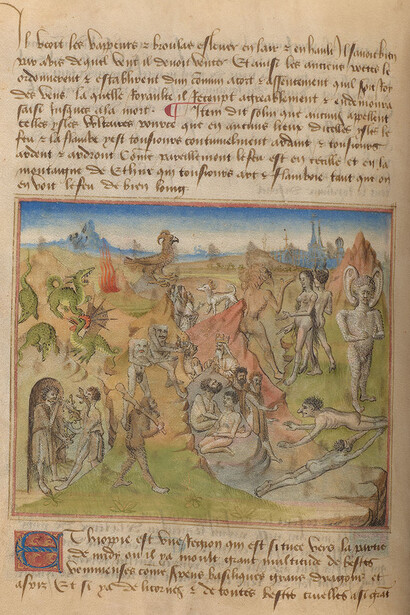 Il veoit les vappeurs & broulas eslever en lair & en hault Il savoit bien
par avis de quel vent il devoit venter Et ainsi les anciens poetes le
ordonnerent & establirent dun commun acort & assentement quil soit Roy
des vens la quelle Royaulte il Receupt agreablement & en demoura
saisi Jusques a la mort . ¶ Item dit solin que aucuns apellent
celles ysles Vulcanes pource que en aucuns lieux dicelles ysles le
feu & la flambe y est tousiours continuelment ardant & tousiours
ardent & ardront Comme pareillement le feu est en cecille et en la
montaigne de Ethna qui tousiours art & flamboie tant que on
en voit le feu de bien loing
Ethiopie est une Region qui est situee vers la partie
de midy ou il ya moult grant multitude de bestes
venimeuses come serpens basiliques grans dragons et
aspiz Et si ya de licornes & de toutes bestes cruelles a si grat